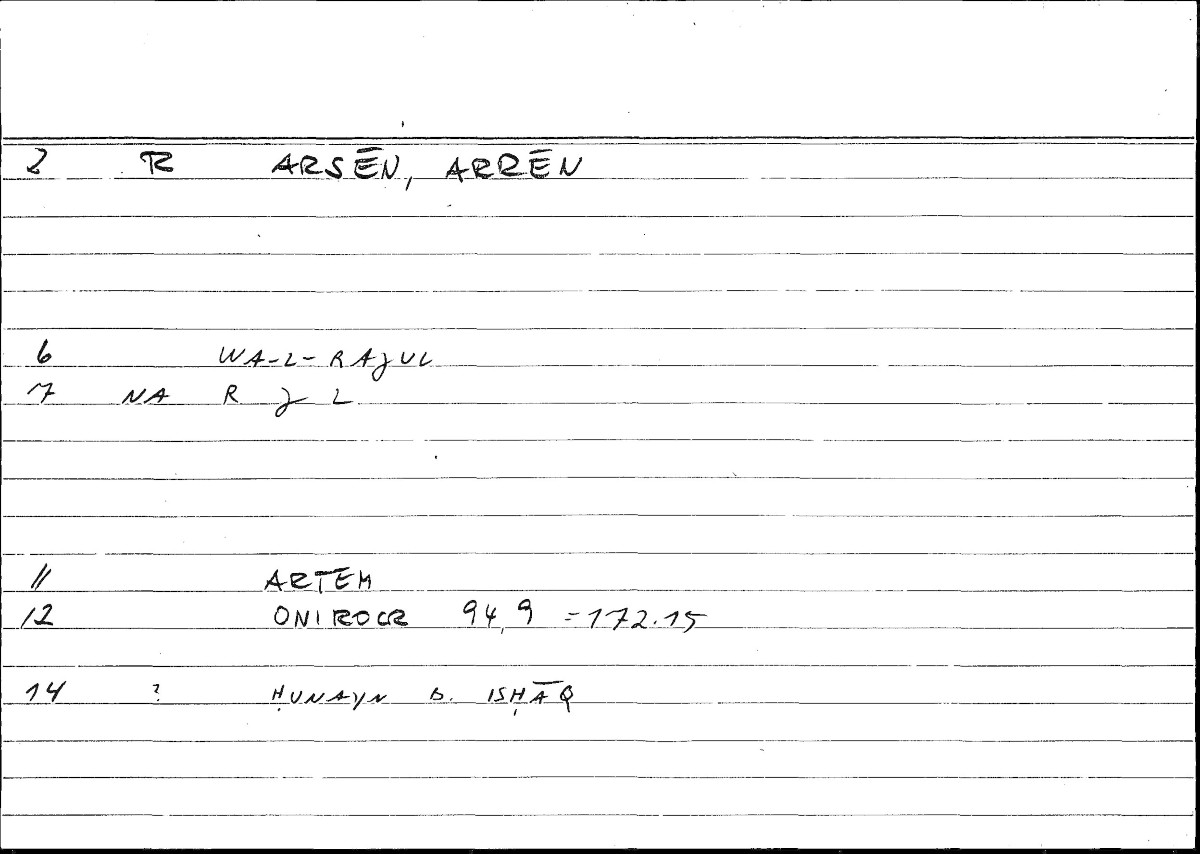 2 R ARSĒN, ARRĒN
6 WA-L-RAJUL
7 NA R J L
11 ARTEM
12 ONIROCR 94,9 = 172.15
14 ? ḤUNAYN B. ISḤĀQ